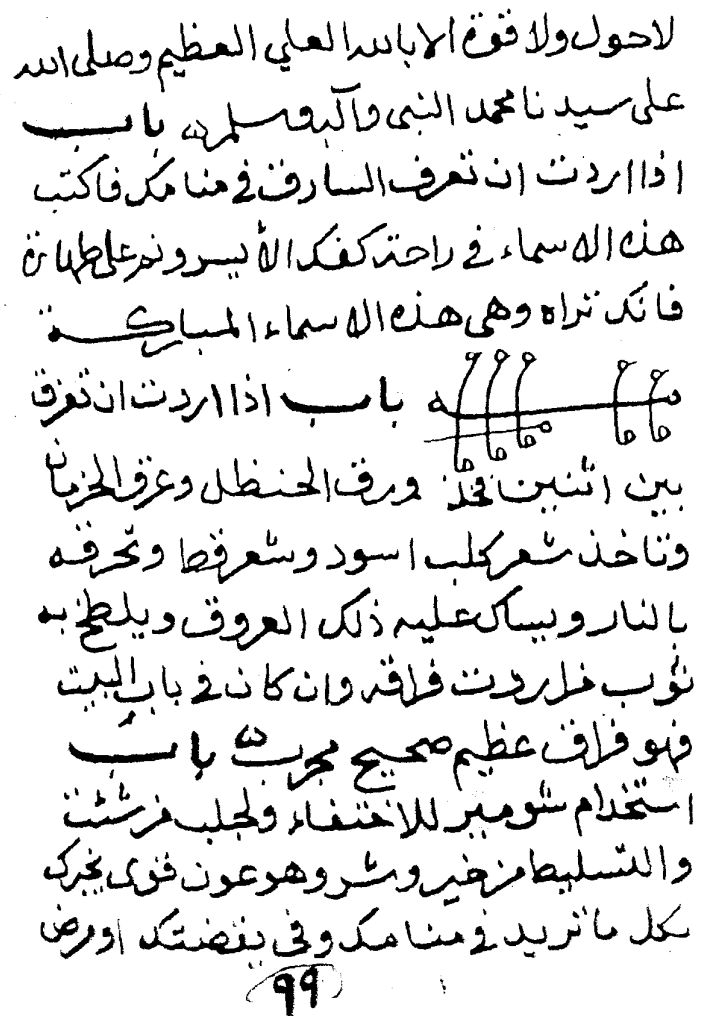 لا حول ولا قوة الا بالله العلي العظيم وصلى الله
على سيدنا محمد النبى وآله وسلم باب
اذا اردت ان تعرف السارق في منامك فاكتب
هذه الاسماء في راحة كفك الأيسر ونم على طهارة
فانك تراه وهى هذه الاسماء المباركة
باب اذا اردت ان تفرق
بين اثنين فخذ ورق الحنظل وعرق
وتاخذ شعر كلب اسود وشعر قط وتحرقه
بالنار ويساك عليه ذلك العروق ويلطخ به
ثوب من اردت فراقه وان كان في باب البيت
فهو فراق عظيم صحيح مجرب باب
استخدام للاختفاء ولجلب من شئت
والتسليط من خير وشر وهو عون قوى يخبرك
بكل ما تريد في منامك وفى يقضتك او مرض
٩٩